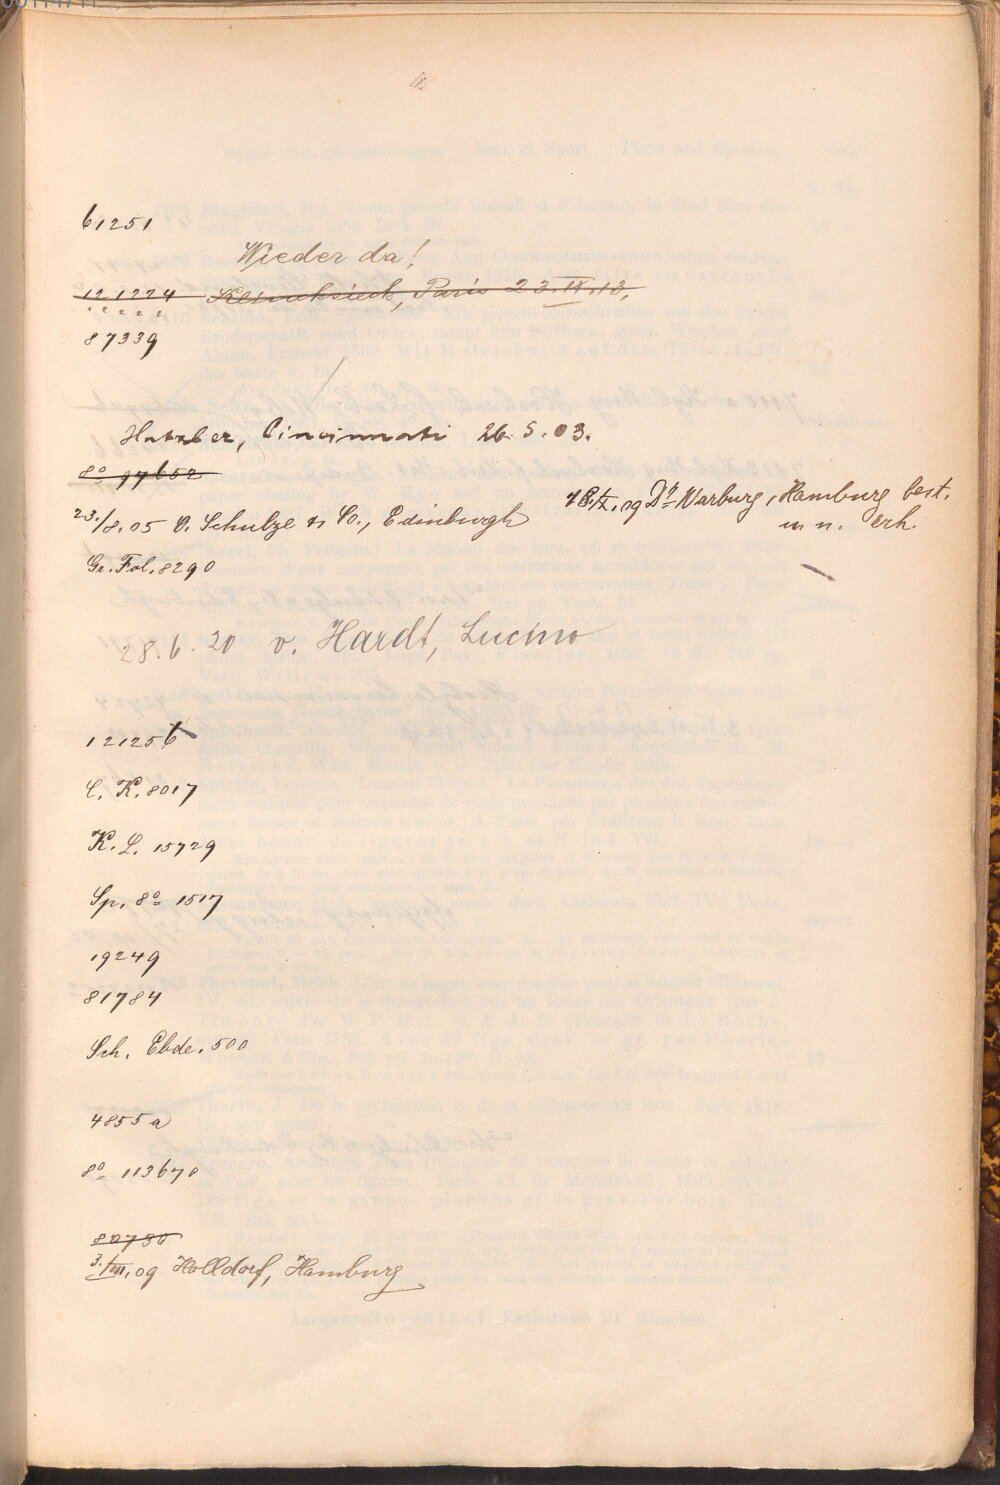 61251
Wieder da!
121224 Klincksieck, Paris 23.IX.13,
87339
Hatzler, Cincinnati 26.5.03.
8º 97652
23./8.05 O. Schulze & Co., Edinburgh
18./X.09 Dr Warburg, Hamburg best.
u n. erh.
Gr. Fol. 8290
28.6.20 v. Hardt, Lucino
121256
C. K. 8017
K. L. 15729
Sp. 8º 1517
19249
81784
Sch. Ebde. 500
4855a
8º 113670
82780
3./III.09 Holldorf, Hamburg